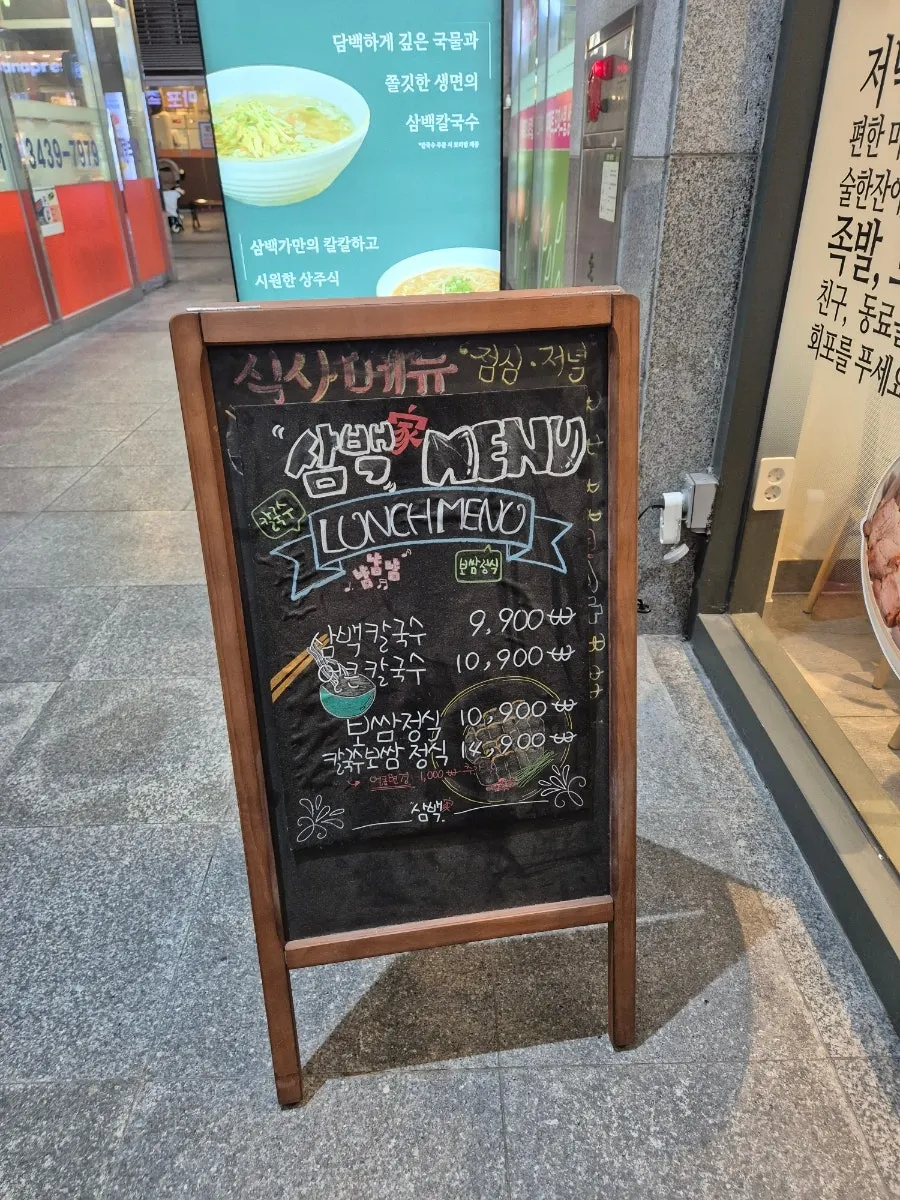 담백하게 깊은 국물과
쫄깃한 생면의
삼백칼국수
*칼국수 주문 시 보리밥 제공
삼백가만의 칼칼하고
시원한 상주식
3439-7979
식사메뉴 "점심·저녁"
"삼백家" MENU
칼국수
LUNCH MENU
냠냠냠
보쌈정식
삼백칼국수 9,900₩
얼큰칼국수 10,900₩
보쌈정식 10,900₩
칼국수보쌈 정식 14,900₩
얼큰변경 1,000₩ 추가
삼백家
편한
술한잔
족발,
친구, 동료
회포를 푸세요